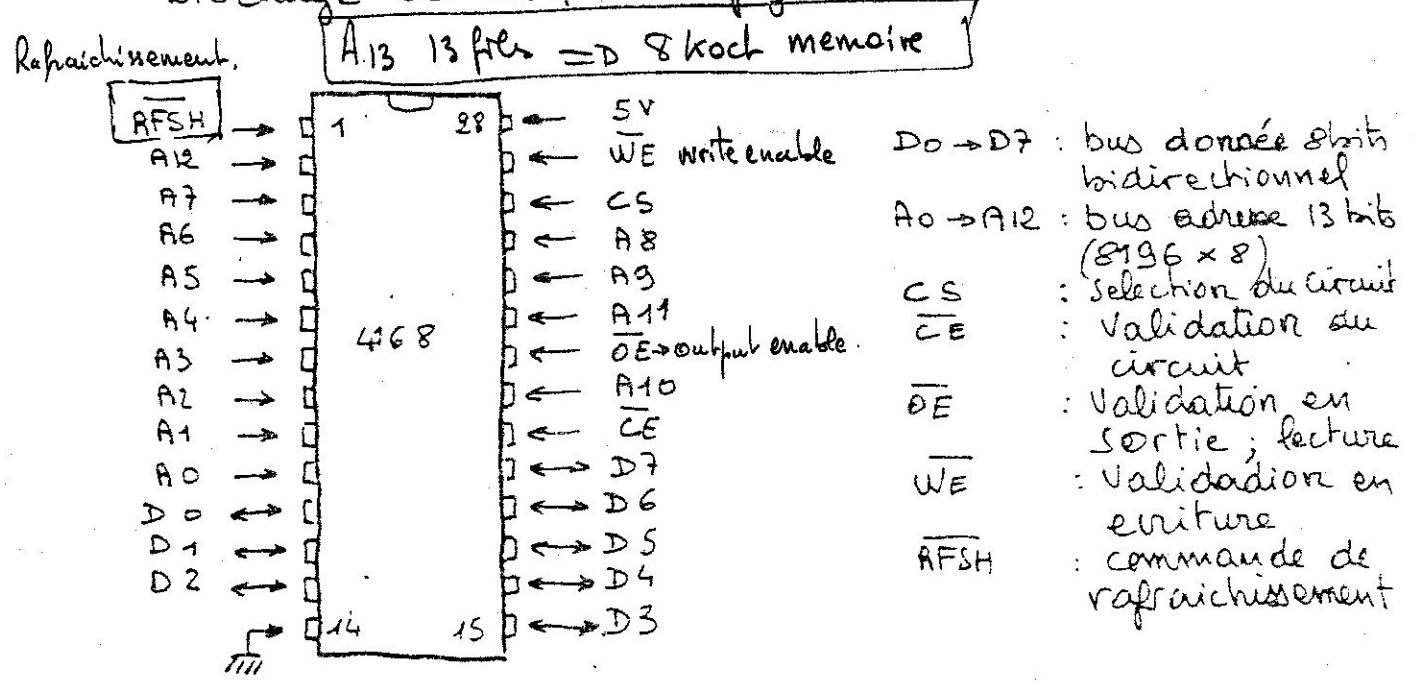 A.13 13 fils => 8 koct memoire
Rafraichissement.
RFSH
A12
A7
A6
A5
A4
A3
A2
A1
A0
D0
D1
D2
1 28
4168
14 15
5V
WE write enable
CS
A8
A9
A11
OE → output enable.
A10
CE
D7
D6
D5
D4
D3
D0 → D7 : bus donnée 8bits
bidirectionnel
A0 → A12 : bus adresse 13 bits
(8196 × 8)
CS : Selection du circuit
CE : Validation du
circuit
OE : Validation en
Sortie ; lecture
WE : Validadion en
ecriture
RFSH : commande de
rafraichissement